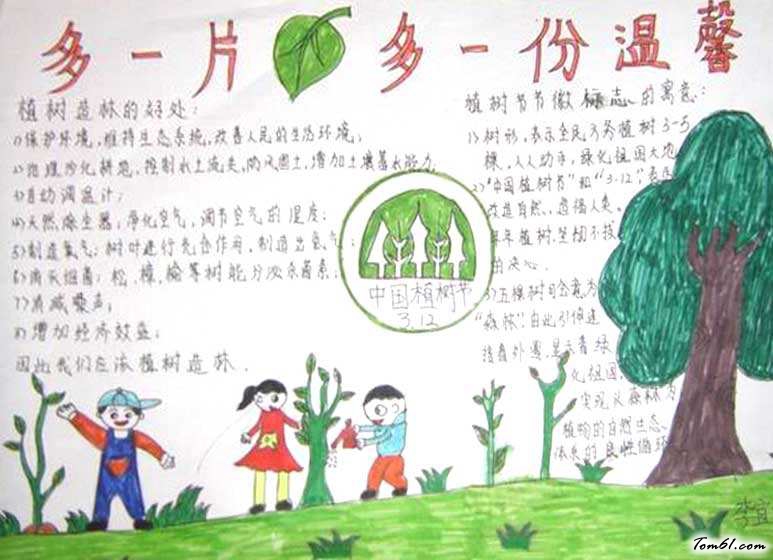 多一片 多一份温馨
植树造林的好处：
1)保护环境，维持生态系统，改善人民的生活环境；
2)治理沙化耕地，控制水土流失，防风固土，增加土壤蓄水能力
3)自动调温计；
4)天然除尘器：净化空气，调节空气的湿度；
5)制造氧气：树叶进行光合作用，制造出氧气；
6)消灭细菌：松、樟、榆等树能分泌杀菌素；
7)消减噪声；
8)增加经济效益；
因此我们应该植树造林．
中国植树节
3.12
植树节节徽标志的寓意：
1)树形，表示全民义务植树3-5
棵，人人动手，绿化祖国大地
2)"中国植树节"和"3·12"，表达
改造自然，造福人类，
年年植树，坚韧不拔
的决心．
3)五棵树可会意为
"森林"，由此引伸连
接着外圈，显示着绿
化祖国，
实现以森林为
植物的自然生态
体系的良性循环
李宜
Tom61.com